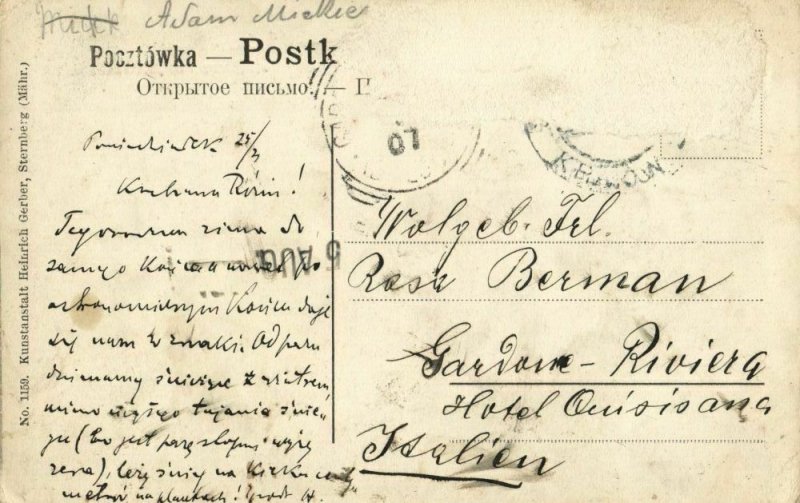 Adam Mickie
Pocztówka — Postk
Открытое письмо. — П
No. 1159. Kunstanstalt Heinrich Gerber, Sternberg (Mähr.)
07
5 AUG
Poniedziałek 25/3
Kochana Róziu!
Tegoroczna zima do
samego końca a nawet po
astronomicznym końcu daje
się nam w znaki. Od paru
dni mamy śnieżycę z wiatrem
mimo ciągłego tajania śnie-
gu (bo jest parę stopni wyżej
zera), leży śnieg na kilka
metrów na plantach!
Wolgeb. Frl.
Rosa Berman
Gardone-Riviera
Hotel Quisisana
Italien